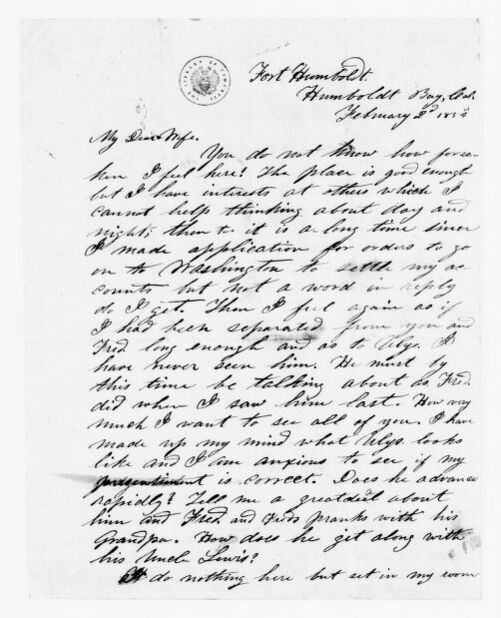 Fort Humboldt.
Humboldt Bay, Cal.
February 2d 185
My Dear Wife.
You do not know how forsa-
ken I feel here! The place is good enough
but I have interests at others which I
cannot help thinking about day and
night; then to it is a long time since
I made application for orders to go
on to Washington to settle my ac-
counts but not a word in reply
do I get. Then I feel again as if
I had been separated from you and
Fred. long enough and as to Ulys. I
have never seen him. He must by
this time be talking about as Fred.
did when I saw him last. How very
much I want to see all of you. I have
made up my mind what Ulys. looks
like and I am anxious to see if my
presentiment is correct. Does he advance
rapidly? Tell me a great deal about
him and Fred. and Freds pranks with his
Grandpa. How does he get along with
his Uncle Lewis?
I do nothing here but set in my room